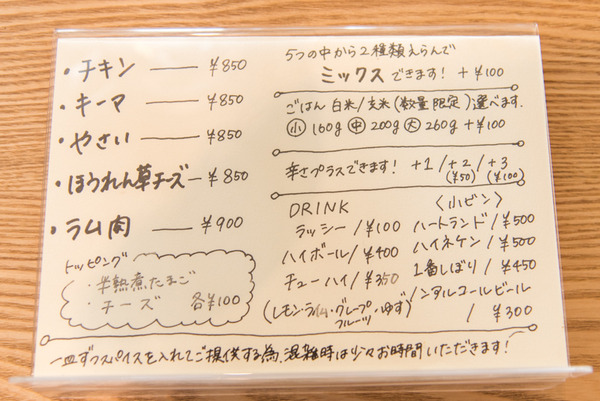 ・チキン ── ¥850
・キーマ ── ¥850
・やさい ── ¥850
・ほうれん草チーズ ─ ¥850
・ラム肉 ── ¥900
トッピング
・半熟煮たまご
・チーズ 各¥100
5つの中から2種類えらんで
ミックスできます! +¥100
ごはん 白米/玄米(数量限定)選べます.
小 160g 中 200g 大 260g +¥100
辛さプラスできます! +1/+2/+3
(¥50) (¥100)
DRINK
ラッシー/¥100
ハイボール/¥400
チューハイ/¥350
(レモン・ライム・グレープフルーツ・ゆず)
〈小ビン〉
ハートランド/¥500
ハイネケン/¥500
1番しぼり/¥450
ノンアルコールビール
/¥300
一皿ずつスパイスを入れてご提供する為、混雑時は少々お時間いただきます!